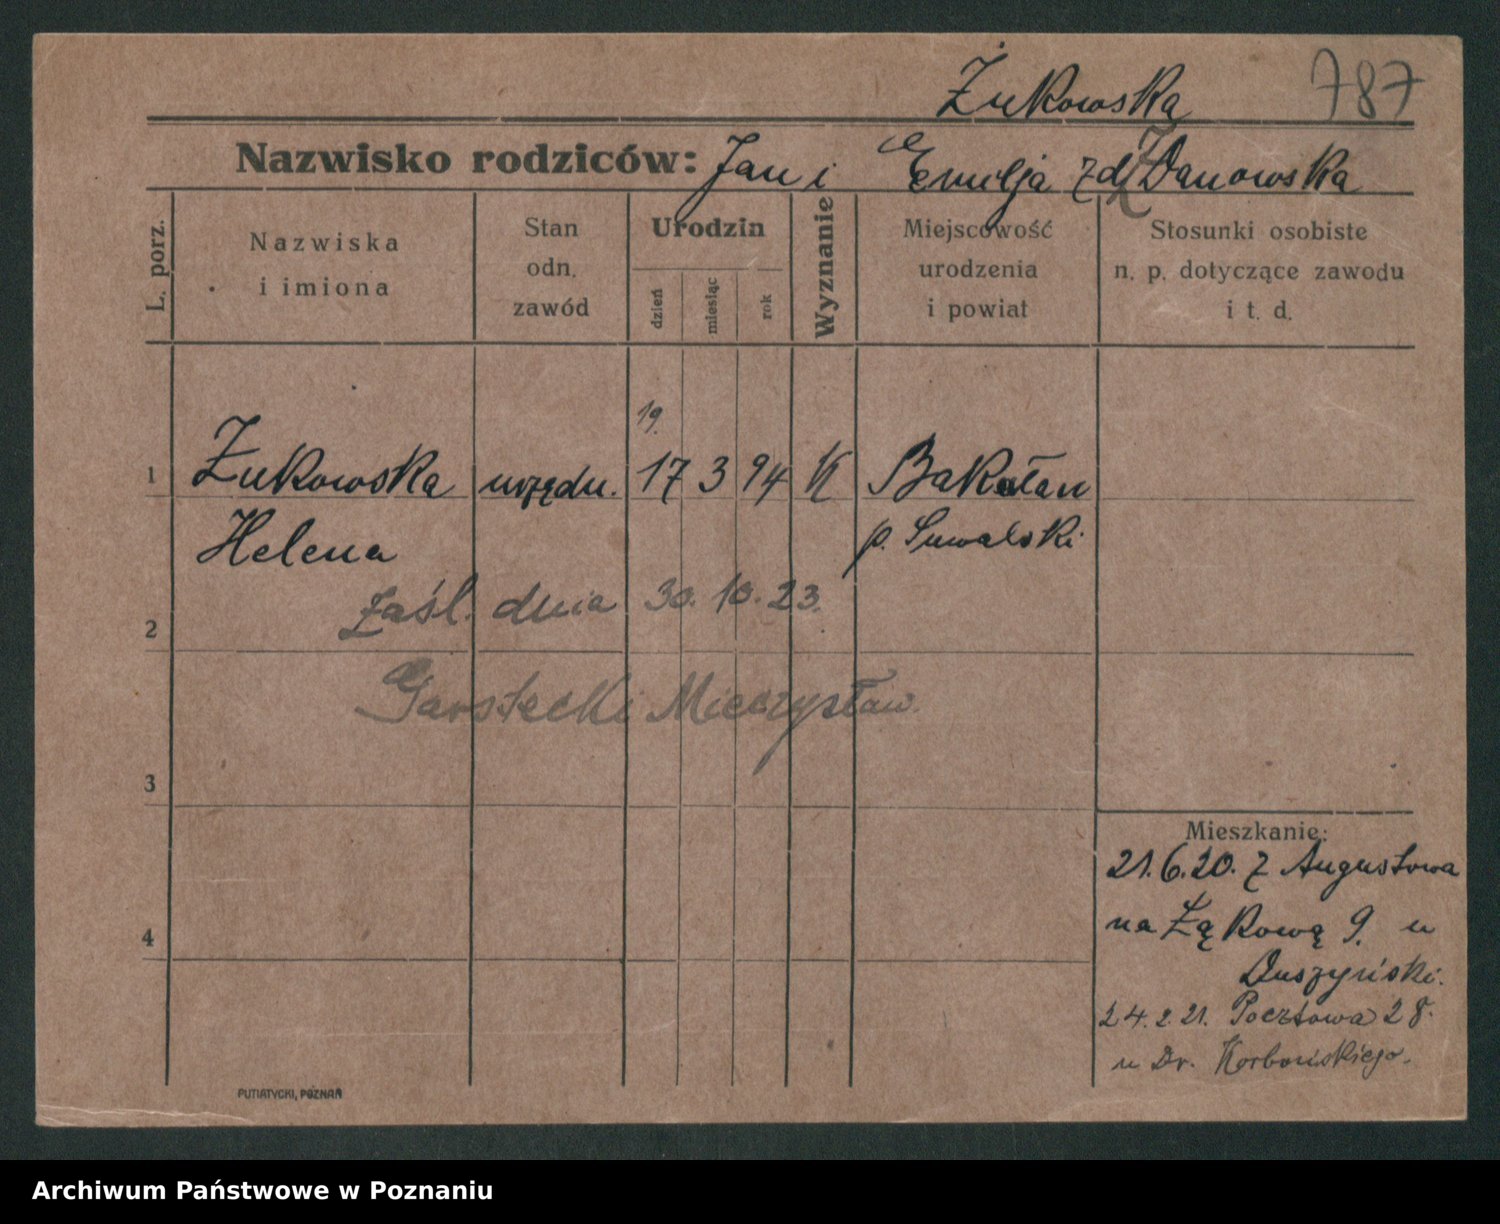 Żukowska 787
Nazwisko rodziców: Jan i Emilja z d. Żdanowska
L. porz.
Nazwiska
i imiona
Stan
odn.
zawód
Urodzin
dzień
miesiąc
rok
Wyznanie
Miejscowość
urodzenia
i powiat
Stosunki osobiste
n. p. dotyczące zawodu
i t. d.
19.
1 Żukowska urzędn. 17 3 94 K Bakałan
Helena p. Suwalski
zaśl. dnia 30. 10. 23.
2
Garstecki Mieczysław.
3
Mieszkanie:
21.6.20. z Augustowa
na Łąkową 9. u
4
Duszyński.
24.2.21. Pocztowa 28.
u Dr. Korbońskiego.
PUTIATYCKI, POZNAŃ
Archiwum Państwowe w Poznaniu